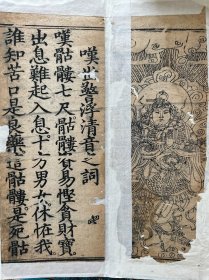 嘆世警浮清音之詞
嘆骷髏七尺骷髏易慳貪財寶
出息難起入息十方男女休怪我
誰知苦口是良藥這骷髏是死骷